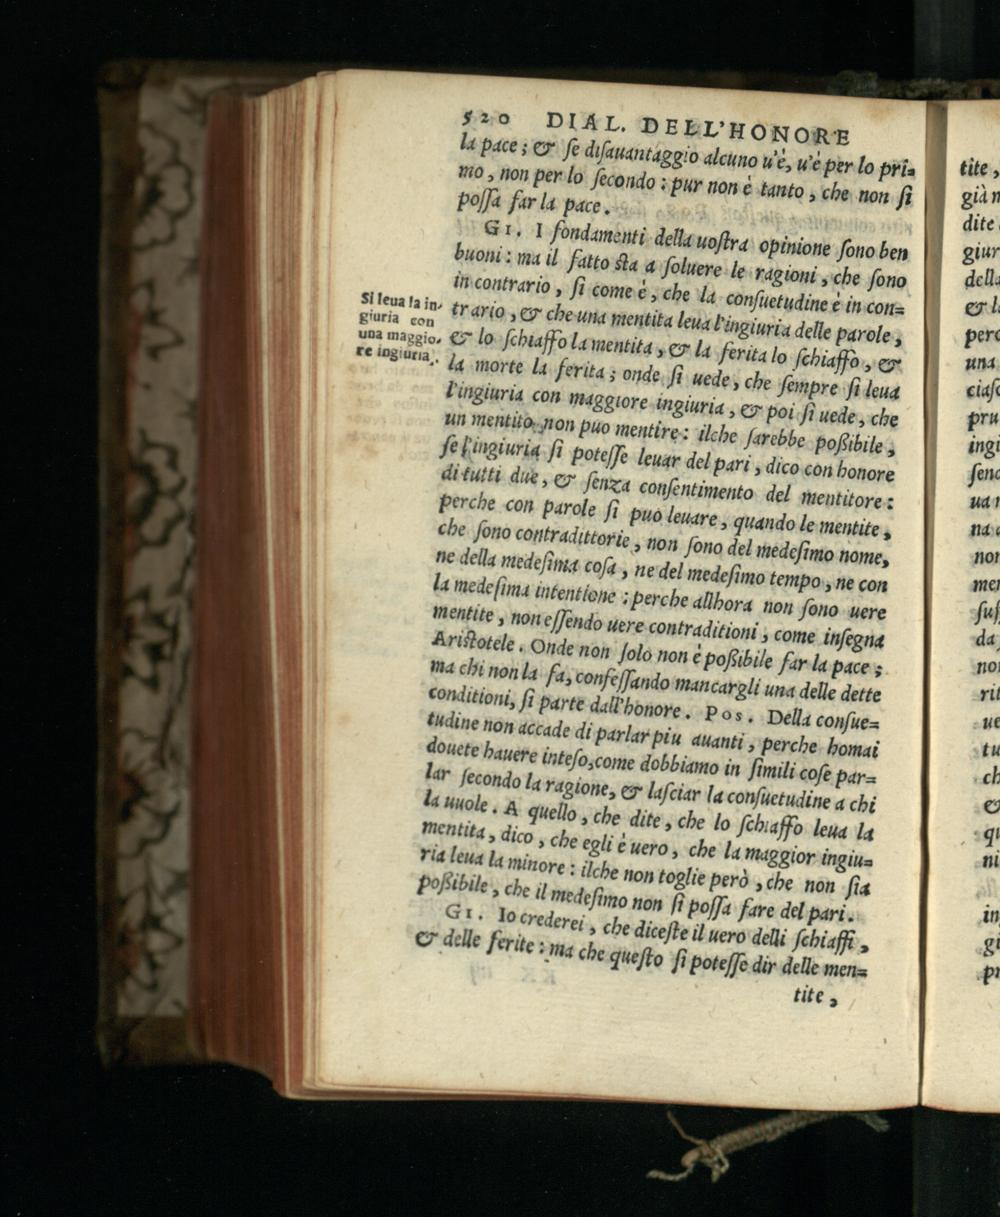 520 DIAL. DELL'HONORE
la pace; & se disauantaggio alcuno u'è, u'è per lo pri=
mo, non per lo secondo: pur non è tanto, che non si
possa far la pace.
GI. I fondamenti della uostra opinione sono ben
buoni: ma il fatto sta a soluere le ragioni, che sono
in contrario, si come è, che la consuetudine è in con=
trario, & che una mentita leua l'ingiuria delle parole,
& lo schiaffo la mentita, & la ferita lo schiaffo, &
la morte la ferita; onde si uede, che sempre si leua
l'ingiuria con maggiore ingiuria, & poi si uede, che
un mentito non puo mentire: ilche sarebbe possibile,
se l'ingiuria si potesse leuar del pari, dico con honore
di tutti due, & senza consentimento del mentitore:
perche con parole si puo leuare, quando le mentite,
che sono contradittorie, non sono del medesimo nome,
ne della medesima cosa, ne del medesimo tempo, ne con
la medesima intentione: perche allhora non sono uere
mentite, non essendo uere contraditioni, come insegna
Aristotele. Onde non solo non è possibile far la pace;
ma chi non la fa, confessando mancargli una delle dette
conditioni, si parte dall'honore. POS. Della consue=
tudine non accade di parlar piu auanti, perche homai
douete hauere inteso, come dobbiamo in simili cose par=
lar secondo la ragione, & lasciar la consuetudine a chi
la uuole. A quello, che dite, che lo schiaffo leua la
mentita, dico, che egli è uero, che la maggior ingiu=
ria leua la minore: ilche non toglie però, che non sia
possibile, che il medesimo non si possa fare del pari.
GI. Io crederei, che diceste il uero delli schiaffi,
& delle ferite: ma che questo si potesse dir delle men=
tite,
Si leua la in-
giuria con
una maggio-
re ingiuria.
tite,
già n
dite
giur
della
& la
perc
una
ciasc
pru
ingi
senc
ua n
na a
non
men
suss
da
non
rit
ue
tu
ch
&
qu
ni
in
gi
pr